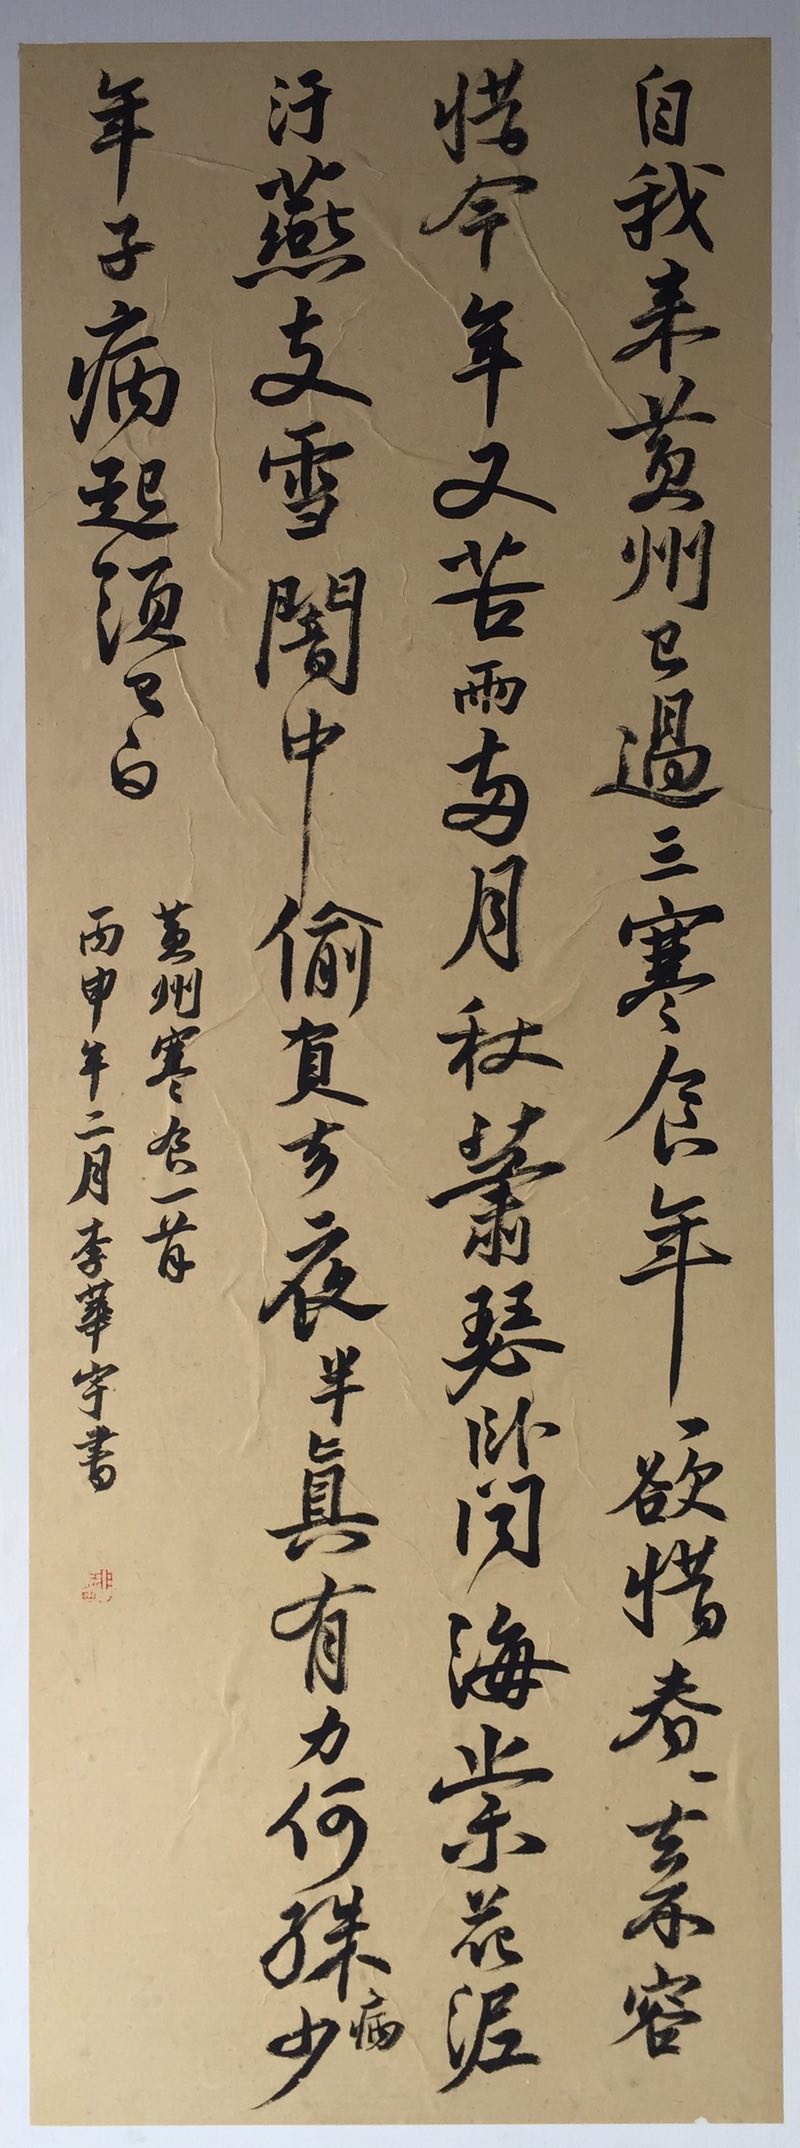 自我来黄州已過三寒食年〻欲惜春〻去不容
惜今年又苦雨兩月秋蕭瑟卧闻海棠花泥
汙燕支雪闇中偷負去夜半真有力何殊少病
年子病起須已白
黄州寒食一首
丙申年二月李華宇書